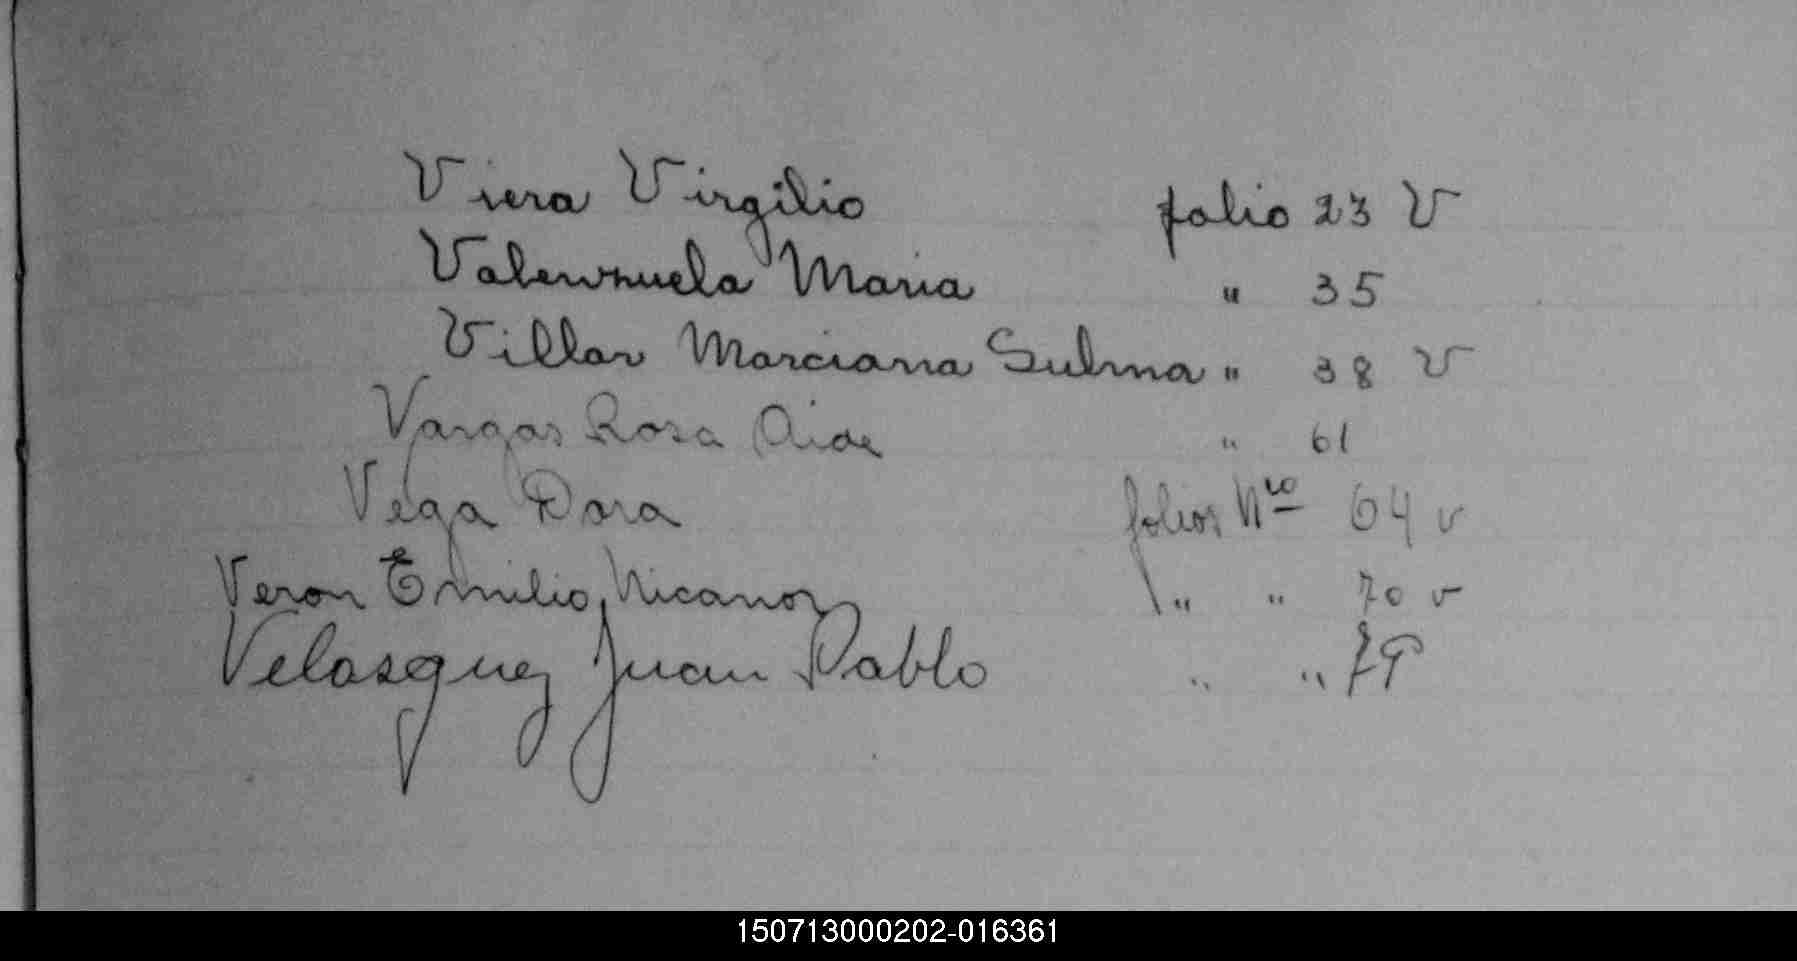 Viera Virgilio folio 23 V
Valenzuela Maria " 35
Villar Marciana Sulma " 38 V
Vargas Rosa Aide " 61
Vega Dora folios Nro 64 v
Veron Emilio Nicanor " " 70 v
Velasquez Juan Pablo " " 79
150713000202-016361